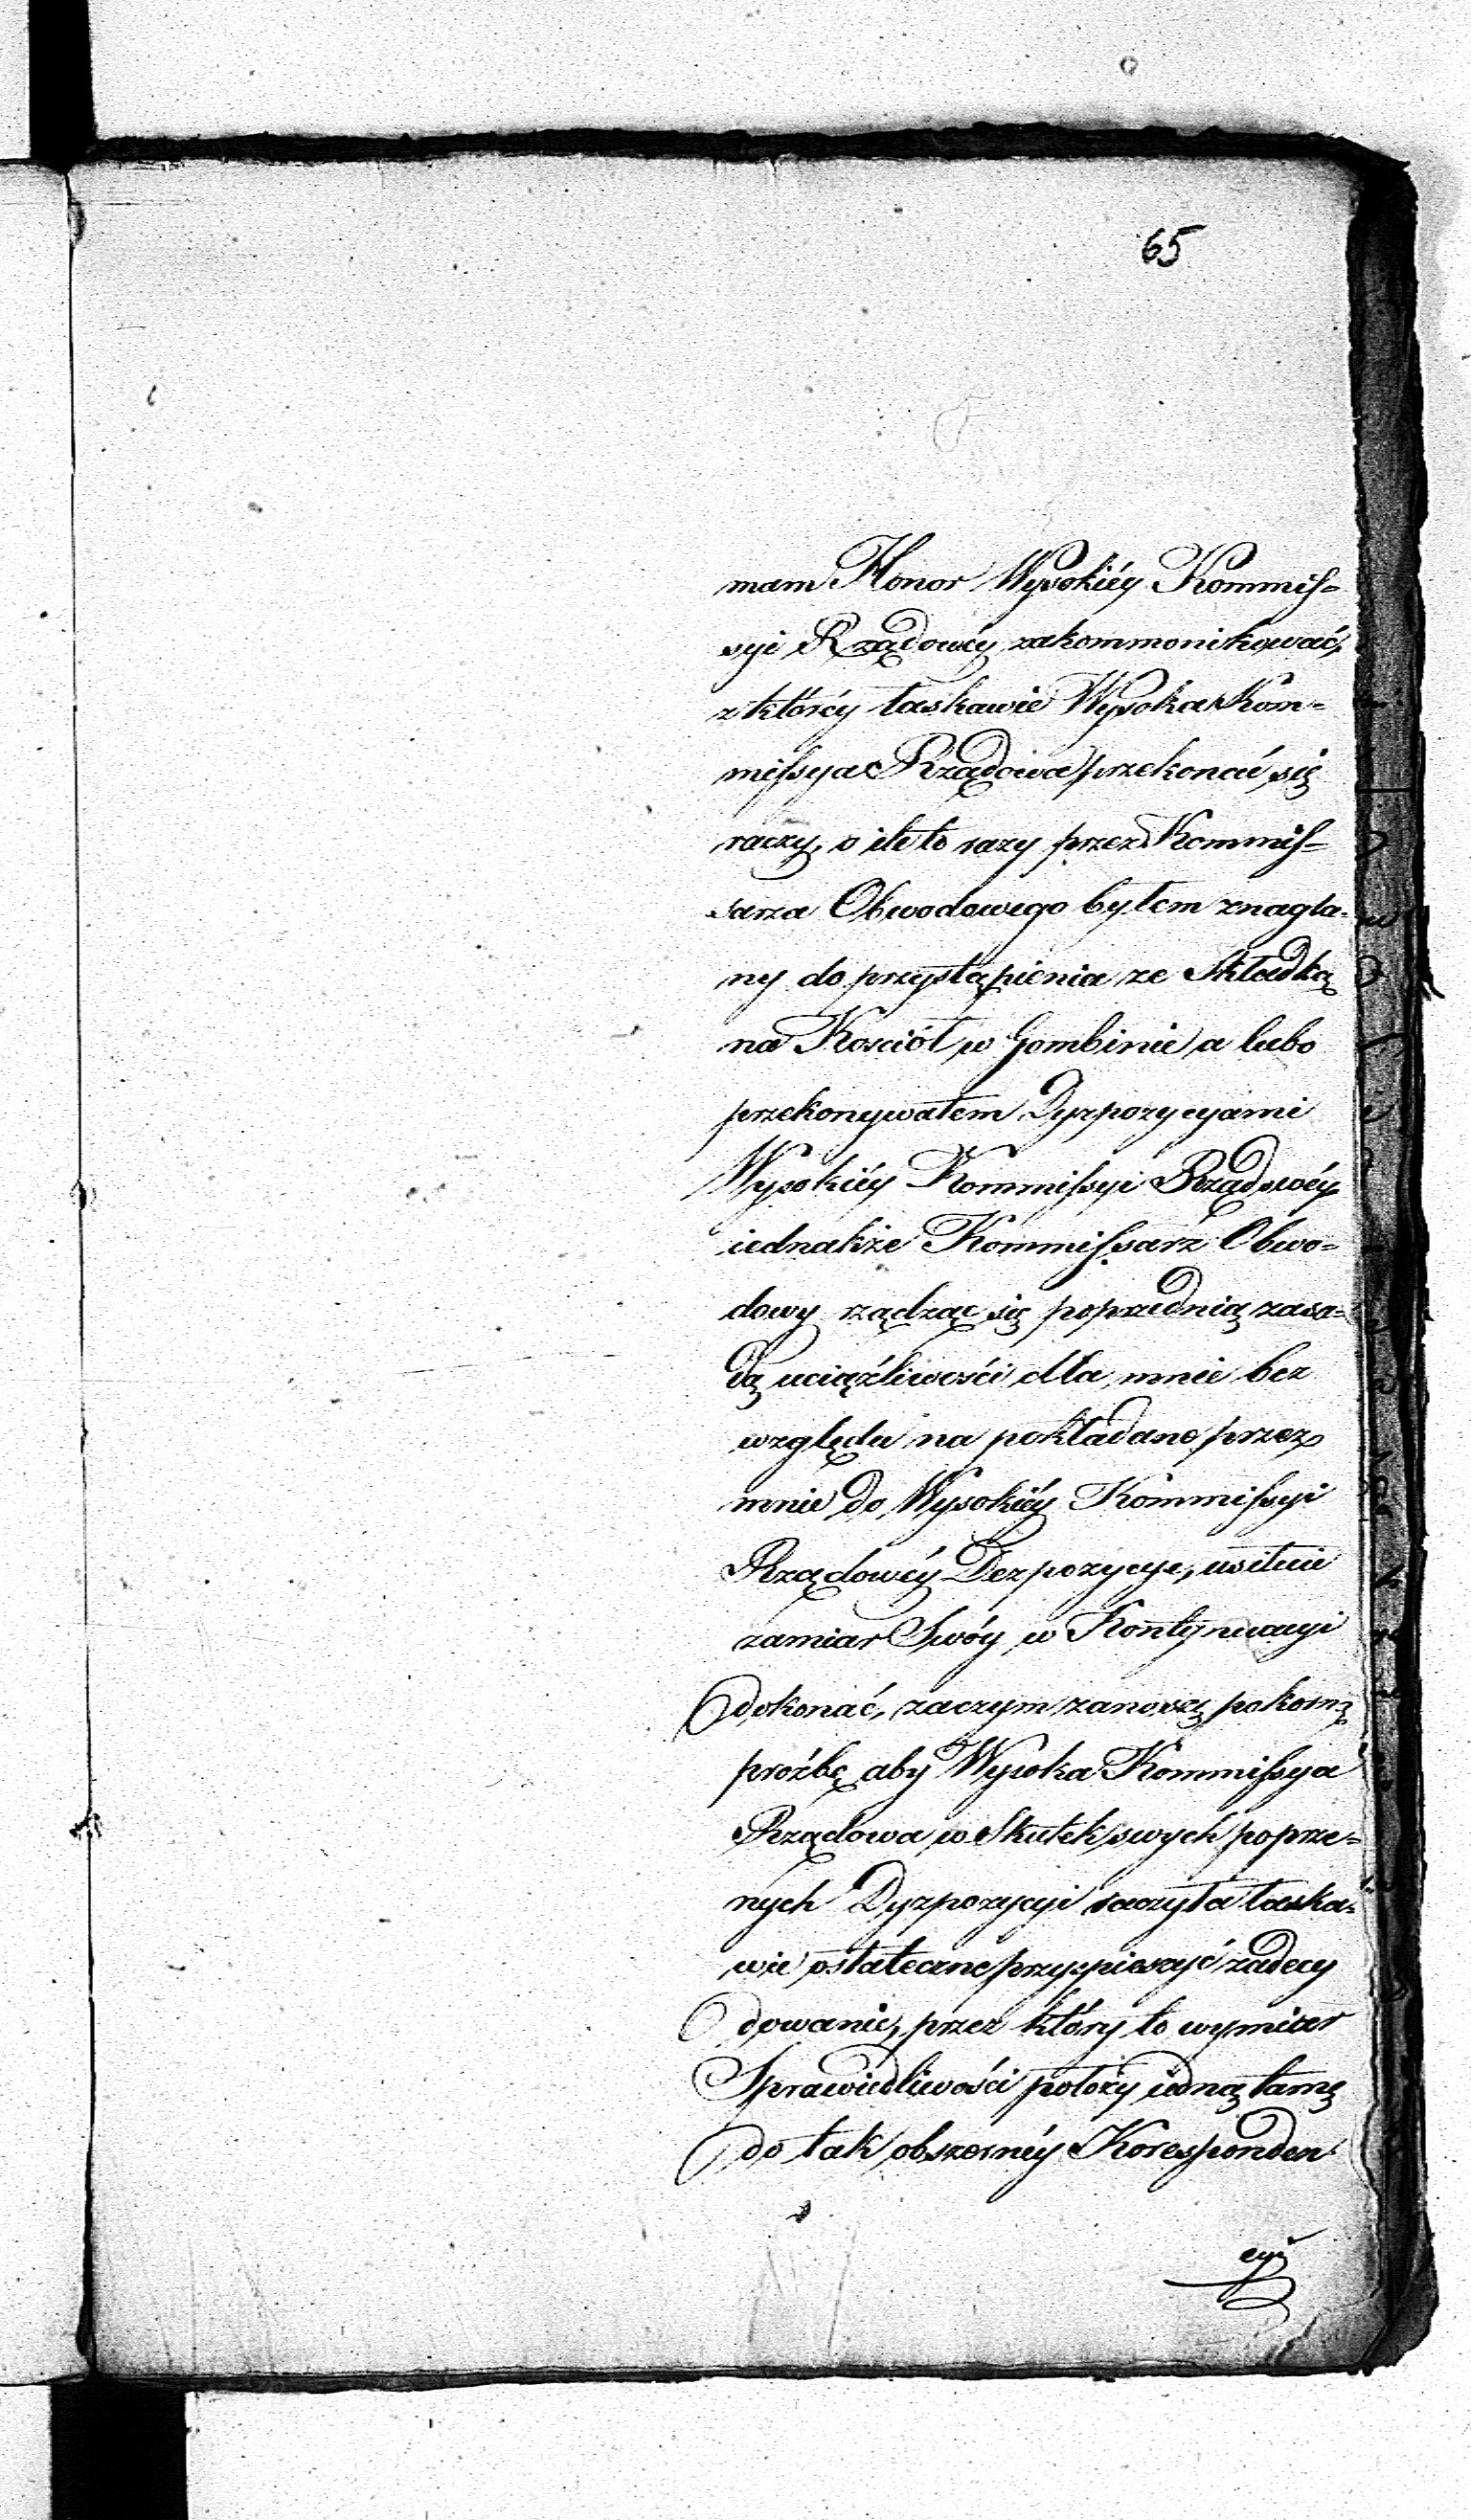 65
mam Honor Wysokiéy Kommis=
syi Rządowéy zakommonikować,
z któréy łaskawie Wysoka Kom=
missya Rządowa przekonać się
raczy, o ile to razy przez Kommis=
sarza Obwodowego byłem znagla=
ny do przystąpienia ze Składką
na Kosciół w Gombinie a lubo
przekonywałem Dyzpozycyami
Wysokiéy Kommissyi Rządowéy
iednakże Kommissarz Obwo=
dowy rządząc się poprzednią zasa=
dą uciążliwości dla mnie bez
względu na pokładane przez
mnie do Wysokiéy Kommissyi
Rządowéy Dezpozycye, usiłuie
zamiar Swóy w Kontynuacyi
dokonać, zaczym zanoszę pokorną
proźbę aby Wysoka Kommissya
Rządowa w Skutek swych poprze=
nych Dyzpozycyi raczyła łaska=
wie ostateczne przyspieszyć zadecy
dowanie, przez który to wymiar
Sprawiedliwości położy iedną tamę
do tak obszernéy Koresponden
cyi